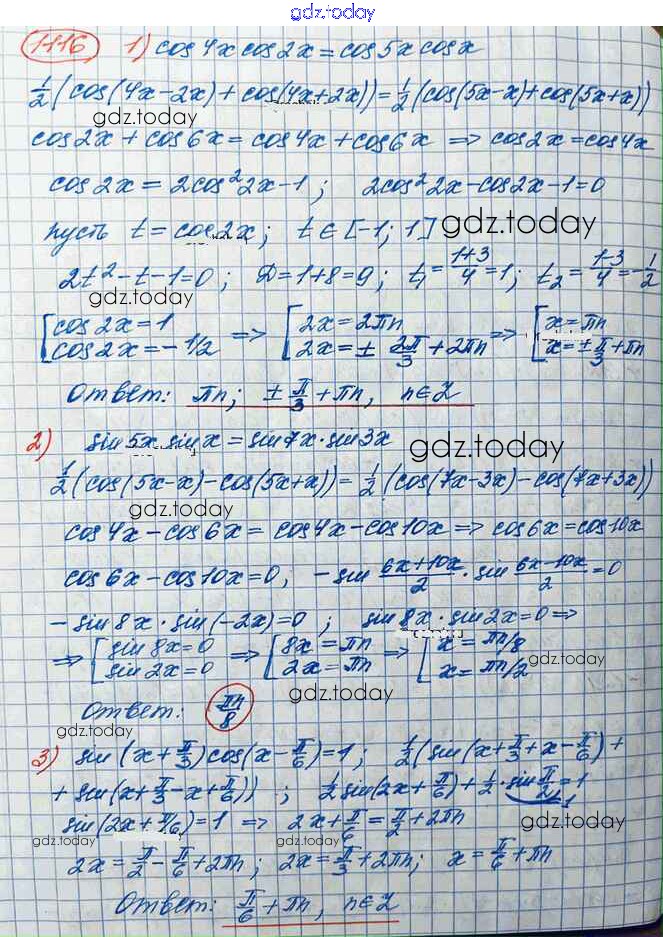 gdz.today
1116) 1) cos 4x cos 2x = cos 5x cos x
1/2 (cos(4x-2x) + cos(4x+2x)) = 1/2 (cos(5x-x) + cos(5x+x))
gdz.today
cos 2x + cos 6x = cos 4x + cos 6x => cos 2x = cos 4x
cos 2x = 2cos² 2x - 1; 2cos² 2x - cos 2x - 1 = 0
пусть t = cos 2x; t ∈ [-1; 1] gdz.today
2t² - t - 1 = 0; D = 1+8 = 9; t₁ = (1+3)/4 = 1; t₂ = (1-3)/4 = -1/2
gdz.today
[cos 2x = 1 => [2x = 2πn => [x = πn
cos 2x = -1/2 2x = ± 2π/3 + 2πn x = ± π/3 + πn
Ответ: πn; ± π/3 + πn, n ∈ Z
2) sin 5x sin x = sin 7x · sin 3x
gdz.today
1/2 (cos(5x-x) - cos(5x+x)) = 1/2 (cos(7x-3x) - cos(7x+3x))
gdz.today
cos 4x - cos 6x = cos 4x - cos 10x => cos 6x = cos 10x
cos 6x - cos 10x = 0; - sin (6x+10x)/2 · sin (6x-10x)/2 = 0
- sin 8x · sin(-2x) = 0; sin 8x · sin 2x = 0 =>
=> [sin 8x = 0 => [8x = πn => [x = πn/8
sin 2x = 0 2x = πn x = πn/2
gdz.today
gdz.today
Ответ: πn/8
gdz.today
3) sin (x + π/3) cos(x - π/6) = 1; 1/2 (sin(x + π/3 + x - π/6) +
+ sin(x + π/3 - x + π/6)); 1/2 sin(2x + π/6) + 1/2 · sin π/2 = 1
1
sin(2x + π/6) = 1 => 2x + π/6 = π/2 + 2πn
gdz.today
gdz.today
2x = π/2 - π/6 + 2πn; 2x = π/3 + 2πn; x = π/6 + πn
Ответ: π/6 + πn, n ∈ Z
gdz.today
gdz.today